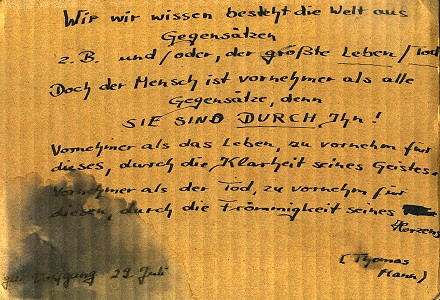 Wir wir wissen besteht die Welt aus
Gegensätzen
z.B. und/oder, der größte Leben/Tod
Doch der Mensch ist vornehmer als alle
Gegensätze, denn
SIE SIND DURCH Ihn!
Vornehmer als das Leben, zu vornehm für
dieses, durch die Klarheit seines Geistes.
Vornehmer als der Tod, zu vornehm für
diesen, durch die Frömmigkeit seines
Herzens
(Thomas
Mann)
29 Juli